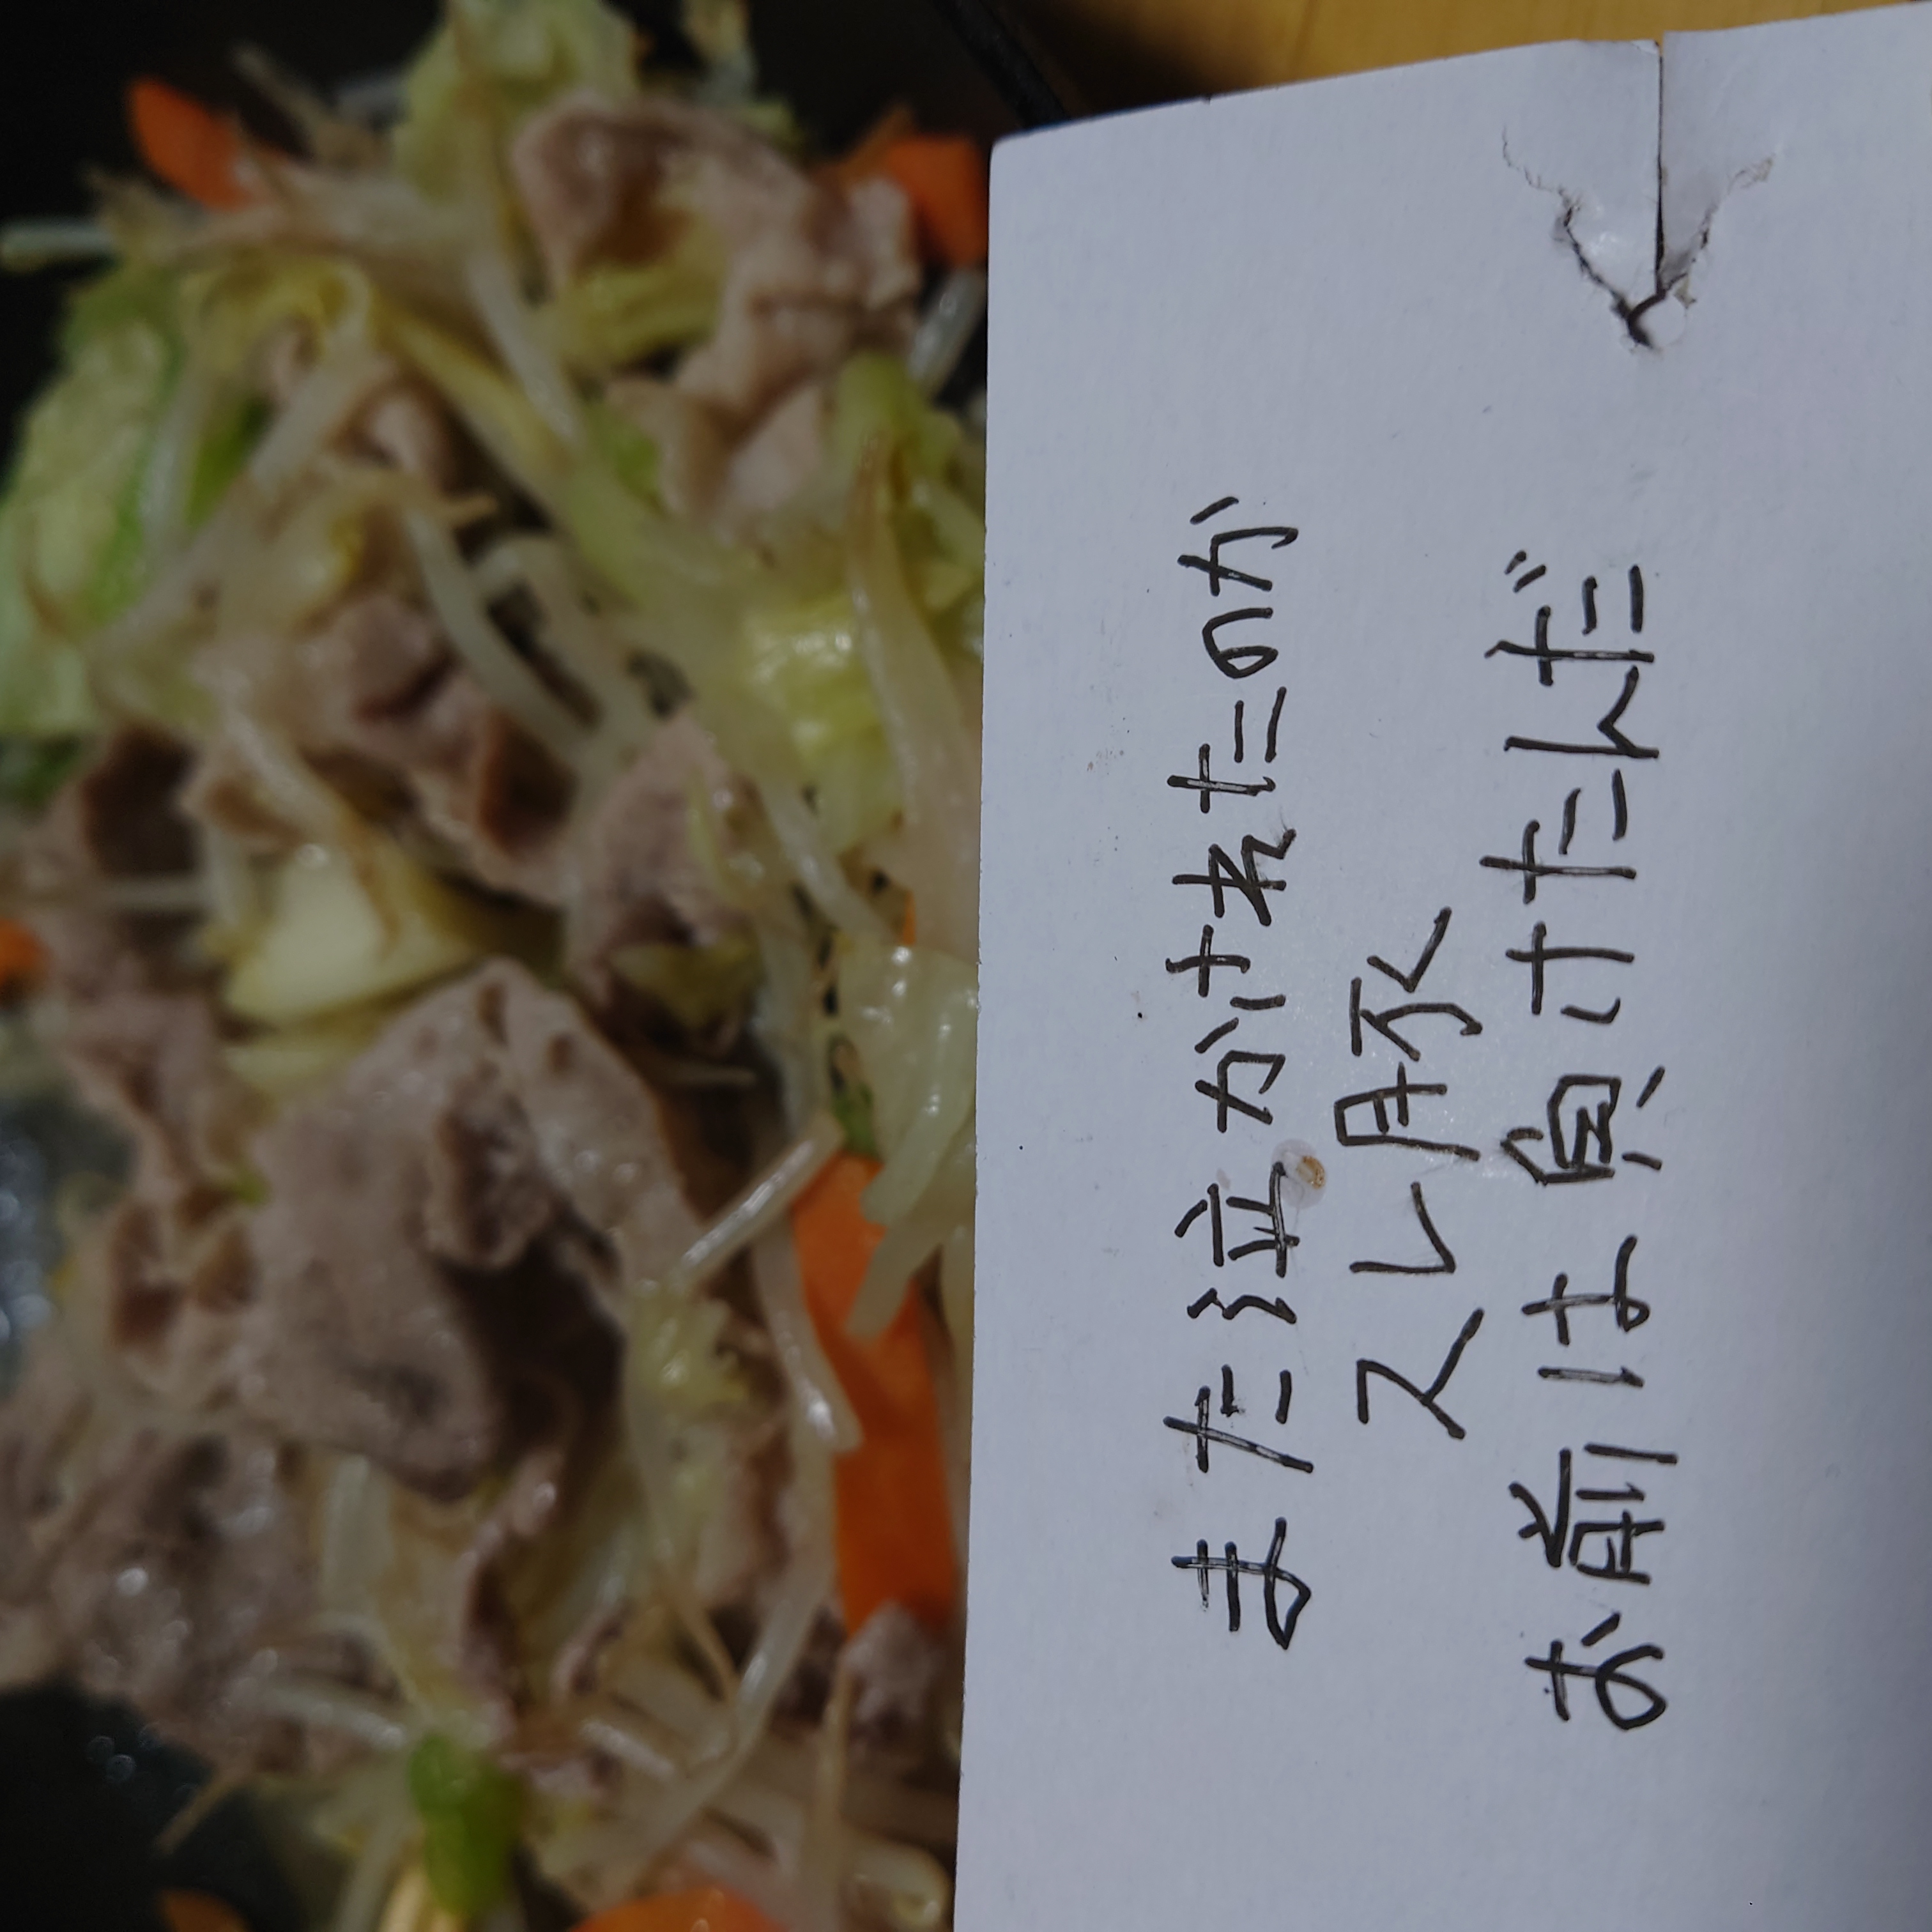 また泣かけれたのか
スレ豚
お前は負けたんだ